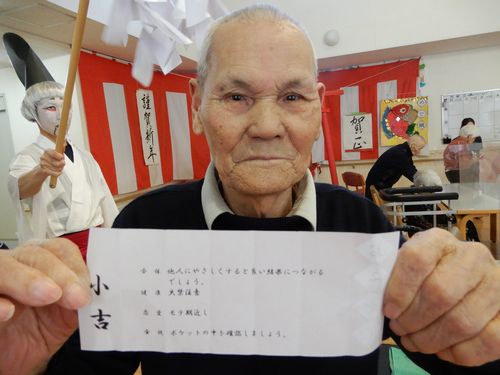 謹賀新年
賀正
小吉
全体 他人にやさしくすると良い結果につながる
でしょう。
健康 火祭注意
恋愛 モテ期近し
金銭 ポケットの中を確認しましょう。